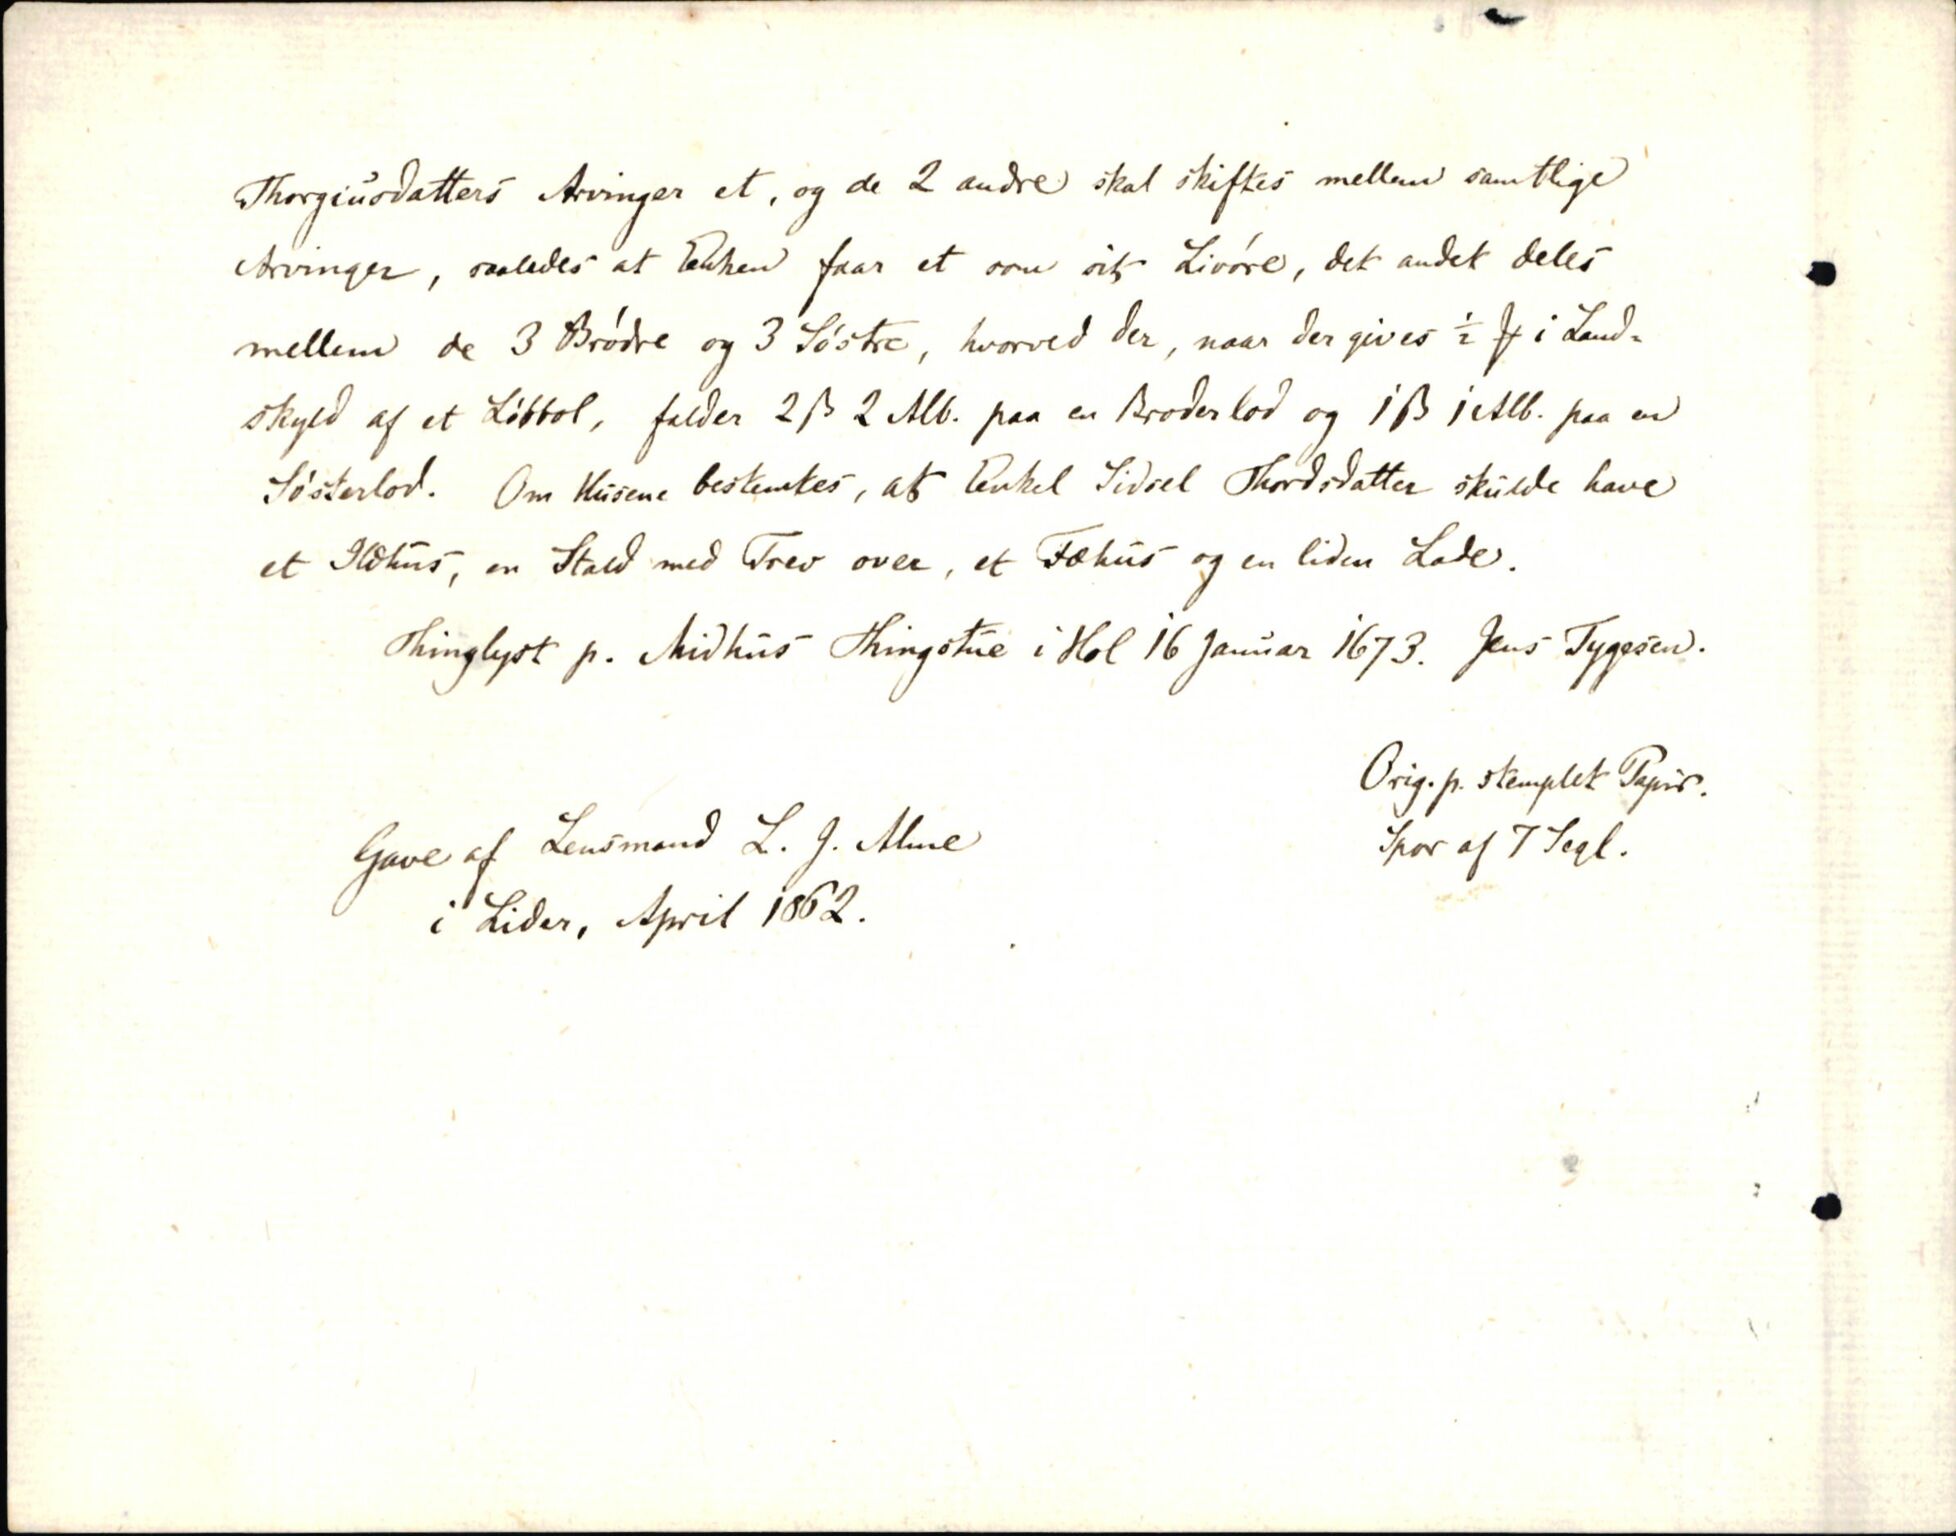 Thorgiusdatters Arvinger et, og de 2 andre skal skiftes mellem samtlige
Arvinger, saaledes at Enken faar et som sit Livöre, det andet deles
mellem de 3 Brödre og 3 Söstre, hvorved der, naar der gives ½ i Land-
skyld af et Löbbol, falder 2 ß 2 Alb. paa en Broderlod og 1 ß 1 Alb. paa en
Sösterlod. Om Husene bestemtes, at Enkel Sidsel Thordsdatter skulde have
et Ildhus, en Stald med Trev over, et Fæhus og en liden Lade.
Thinglyst p. Midhus Thingstue i Hol 16 Januar 1673. Jens Tygesen.
Orig. p. stemplet Papir.
Spor af 7 Segl.
Gave af Lensmand L. J. Alme
i Lider, April 1862.